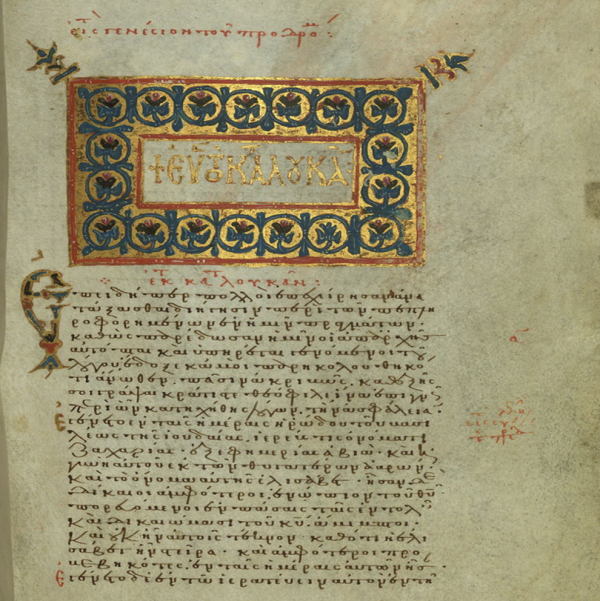 εἰς τ γενέσιον τοῦ προδρό:
+ ΕΥ ΚΑΤΑ ΛΟΥΚΑ
ἐκ κατ λουκᾶν:
Ἐπειδήπερ πολλοὶ ἐπεχείρησαν ἀνα
τάξασθαι διήγησιν περὶ τῶν πεπλη
ροφορημένων ἐν ἡμῖν πραγμάτων·
καθὼς παρέδωσαν ἡμῖν οἱ ἀπ ἀρχῆς
αὐτόπται καὶ ὑπηρέται γενόμενοι τοῦ
λόγου· ἔδοξε κἀμοὶ παρηκολουθηκό
τι ἄνωθεν πᾶσιν ἀκριβῶς καθεξῆς
σοι γράψαι κράτιστε θεόφιλε· ἵνα ἐπιγνῷς
περὶ ὧν κατηχήθης λόγων τὴν ἀσφάλειαν·
ἐγένετο ἐν ταῖς ἡμέραις ἡρώδου τοῦ βασι
λέως τῆς ἰουδαίας ἱερεύς τις ὀνόματι
ζαχαρίας· ἐξ ἐφημερίας ἀβιά· καὶ ἡ
γυνὴ αὐτοῦ ἐκ τῶν θυγατέρων ἀαρών·
καὶ τὸ ὄνομα αὐτῆς ἐλισάβετ· ἦσαν δὲ
δίκαιοι ἀμφότεροι ἐνώπιον τοῦ θυ
πορευόμενοι ἐν πάσαις ταῖς ἐντολαῖς
καὶ δικαιώμασι τοῦ κυ ἄμεμπτοι·
καὶ οὐκ ἦν αὐτοῖς τέκνον· καθότι ἡ ἐλι
σάβετ ἦν στεῖρα· καὶ ἀμφότεροι προ
βεβηκότες ἐν ταῖς ἡμέραις αὐτῶν ἦσαν·
ἐγένετο δὲ ἐν τῷ ἱερατεύειν αὐτὸν ἐν τῇ